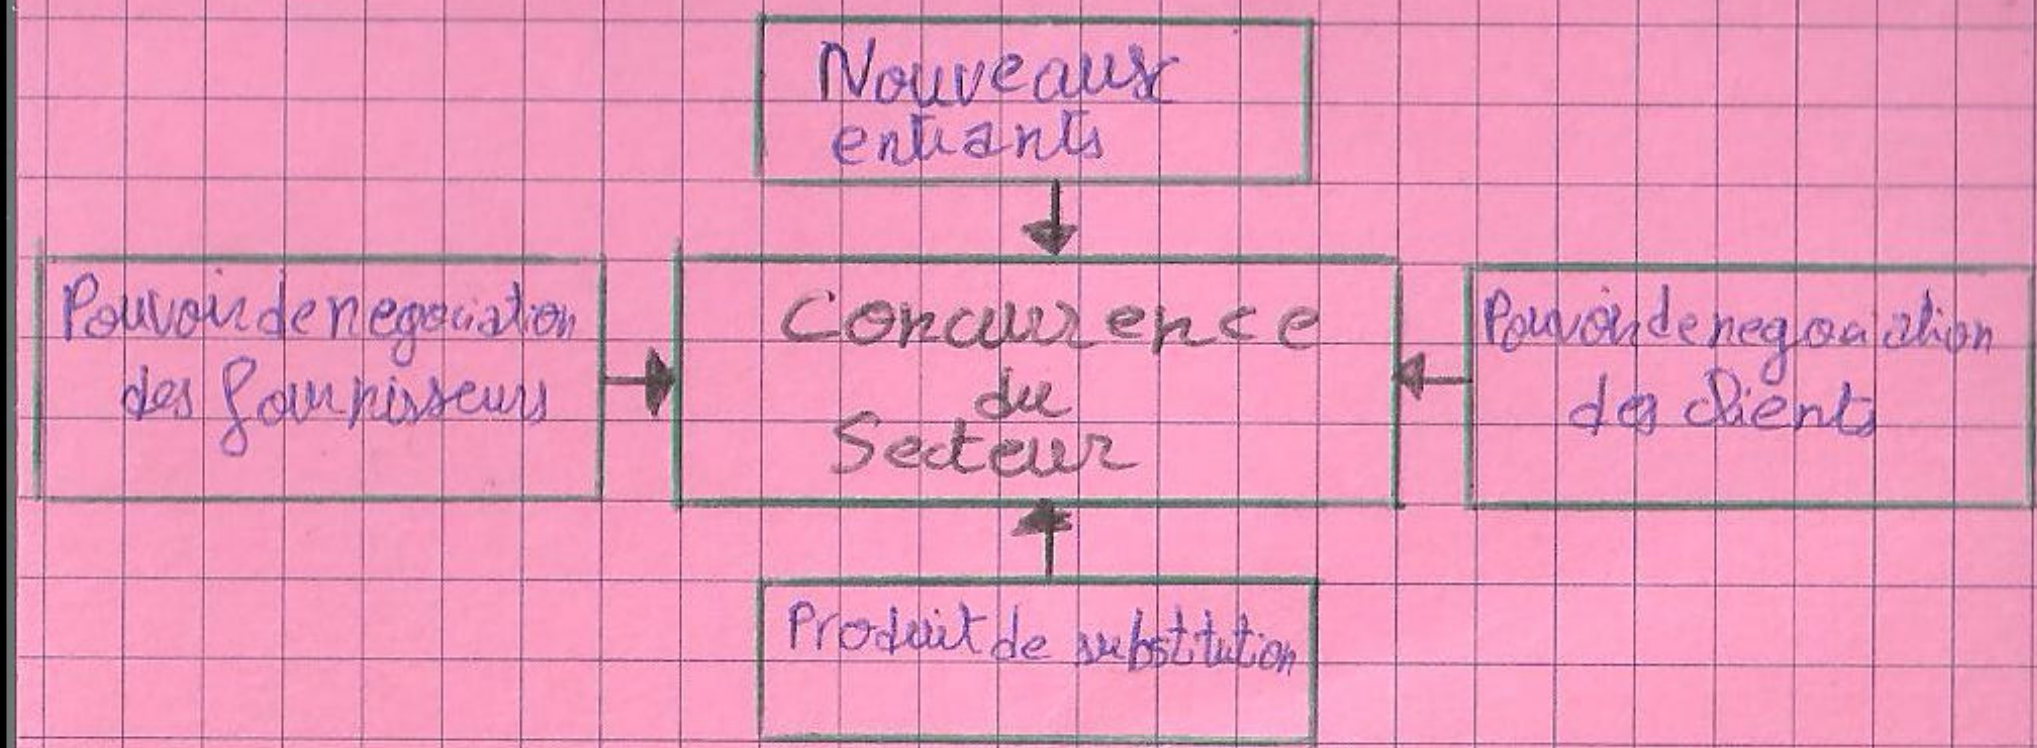 Nouveaux
entrants
Pouvoir de negociation
des fournisseurs
Concurrence
du
Secteur
Pouvoir de negociation
des clients
Produit de substitution